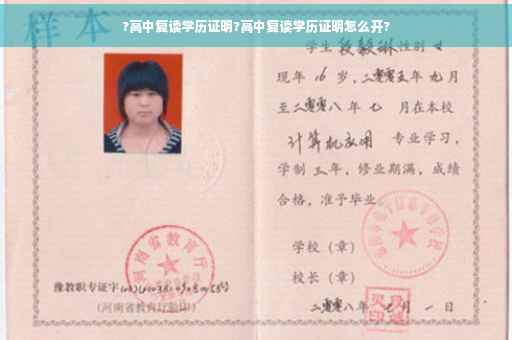 ?高中复读学历证明?高中复读学历证明怎么开?
样本
学生段毅琳性别女
现年16岁，二零零五年九月
至二零零八年七月在本校
计算机应用 专业学习，
学制三年，修业期满，成绩
合格，准予毕业。
学校（章）
校长（章）
二零零八年七月一日
河南省教育厅
豫教职专证字
（河南省教育厅验印）